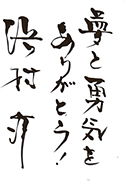 夢と勇気を
ありがとう!
浜村淳